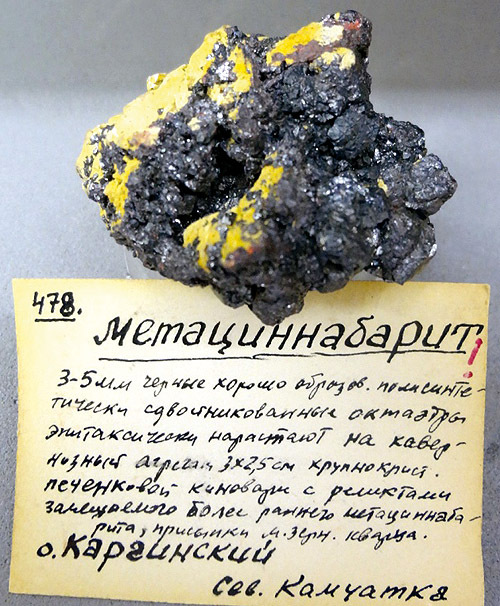 478.
Метациннабарит!
3-5мм черные хорошо образов. полисинте-
тически сдвойникованные октаэдры
эпитаксически нарастают на кавер-
нозный агрегат 3х2,5см крупнокрист.
печенковой киновари с реликтами
замещаемого более раннего метациннаба-
рита, присыпки м.зерн. кварца.
о.Карагинский
Сев. Камчатка